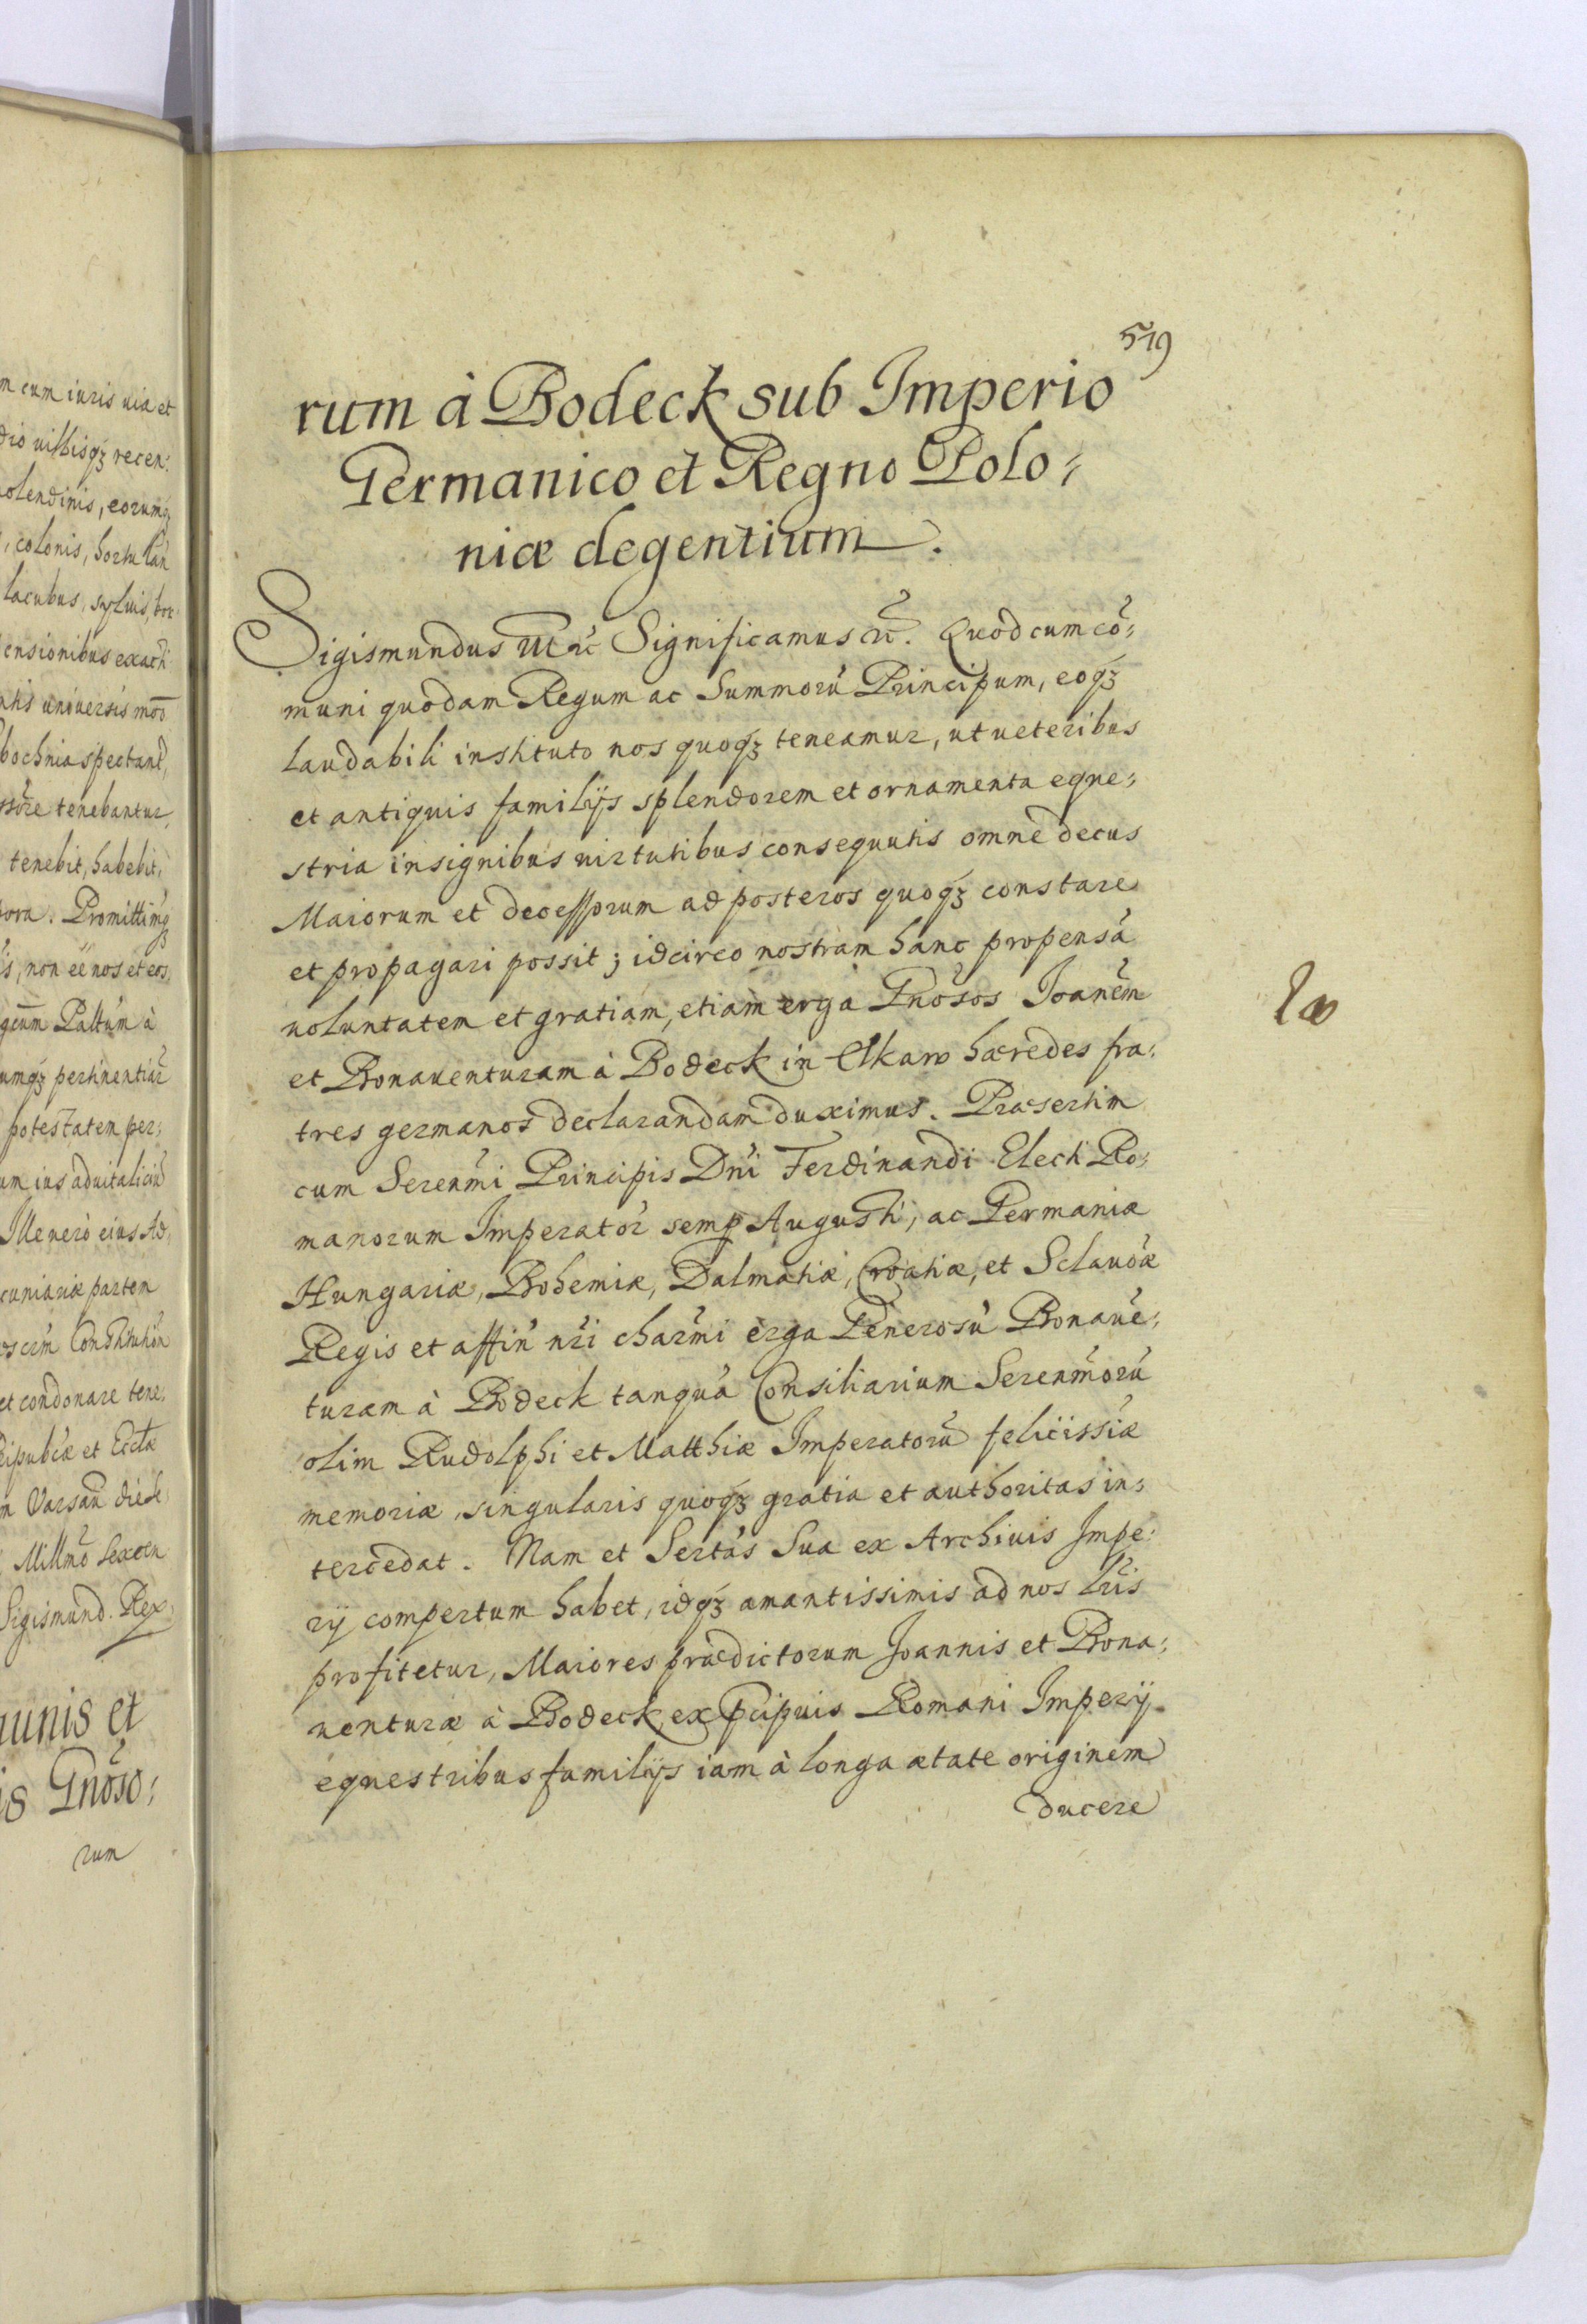 m cum iuris via et
dio villisqȝ recen:
olendinis, eorumqȝ
, colonis, hortulan
lacubus, syluis, bor
ensionibus exacti
ntis universis mod
bochnia spectant,
ssore tenebantur,
tenebit, habebit,
pora. Promittimqȝ
is, non eē nos et eos,
gcum Paltum à
umqȝ pertinentiar
potestatem per:
um ius aduitaliciū
Ille uero eius Ad,
cuniariæ partem
Constitution
et condonare tene,
Reipublcæ et Eccłæ
m Varsau die
Millmo sexcen
Sigismund. Rex
munis et
is Gnoso:
rum
519
rum à Bodeck sub Imperio
Germanico et Regno Polo:
niæ degentium.
Sigismundus III etc Significamus etc. Quod cum cō:
muni quodam Regum ac Summorū Principum, eoqȝ
laudabili instituto nos quoqȝ teneamur, ut ueteribus
et antiquis familijs splendorem et ornamenta eque:
stria insignibus uirtutibus consequutis omne decus
Maiorum et decessorum ad posteros quoqȝ constare
et propagari possit; idcirco nostram hanc propensā
uoluntatem et gratiam, etiam erga Gnosos Joanēm
et Bonauenturam à Bodeck in Elkaw hæredes fra:
tres germanos declarandam duximus. Præsertim
cum Serenmi Principis Dni Ferdinandi Electi Ro:
manorum Imperator semp Augusti, ac Germaniæ
Hungariæ, Bohemiæ, Dalmatiæ, Croatiæ, et Sclauoæ
Regis et affin nri charmi erga Generosū Bonauē:
turam à Bodeck tanquā Consiliarium Serenmorū
olim Rudolphi et Matthiæ Imperatorū feliciissiæ
memoriæ, singularis quoqȝ gratia et authoritas in:
tercedat. Nam et Sertas Sua ex Archiuis Impe:
rij compertum habet, idqȝ amantissimis ad nos Lris
profitetur, Maiores prædictorum Joannis et Bona:
uenturæ à Bodeck, ex pcipuis Romani Imperij
equestribus familijs iam à longa ætate originem
ducere